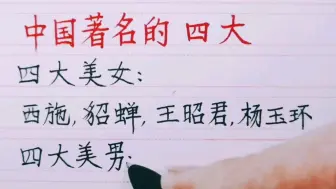 中国著名的四大
四大美女:
西施,貂蝉,王昭君,杨玉环
四大美男: